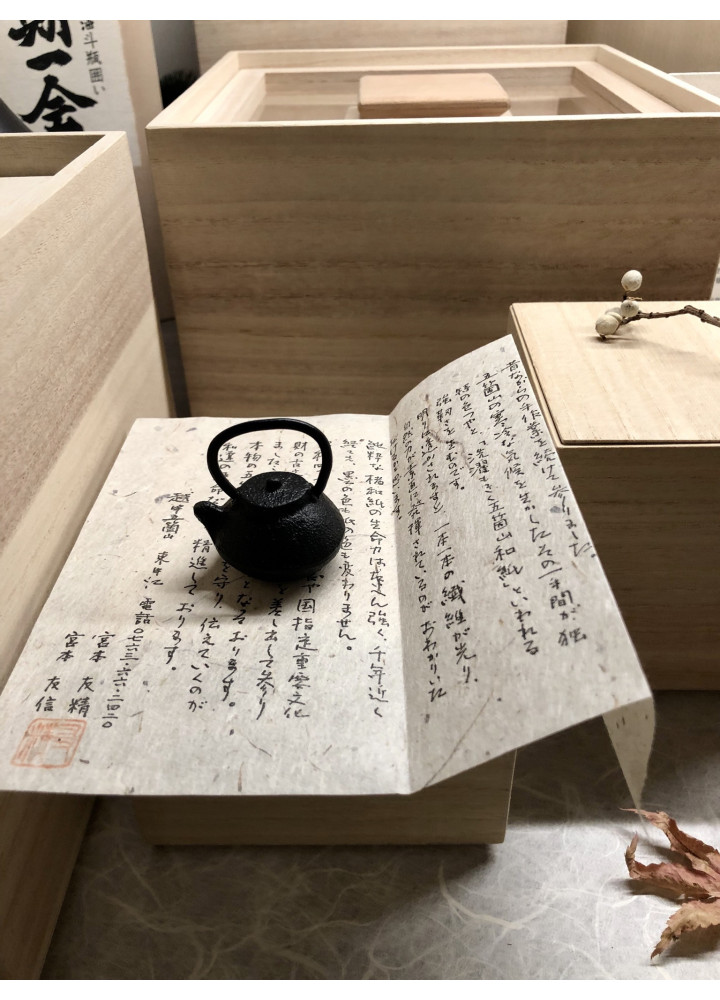 期一会
斗瓶囲い
昔ながらの手作業を続け参りました。
五箇山の寒冷な気候を生かしたその一手間が独
特の色つやと、洗濯もきく五箇山和紙といわれる
強靭さを生むのです。
明りに透かされますと、一本一本の繊維が光り、
自然の力が素直に発揮されているのがおわかりいた
純粋な楮和紙の生命力はたいへん強く、千年近く
経ても、墨の色も紙の色も変わりません。
や国指定重要文化
財の
を差し出して参り
ました
本物の五
となるおります。
和達の
を守り、伝えていくのが
精進しております。
越中五箇山 東中江 電話〇七六三・六六・二四二〇
宮本 友精
宮本 友信